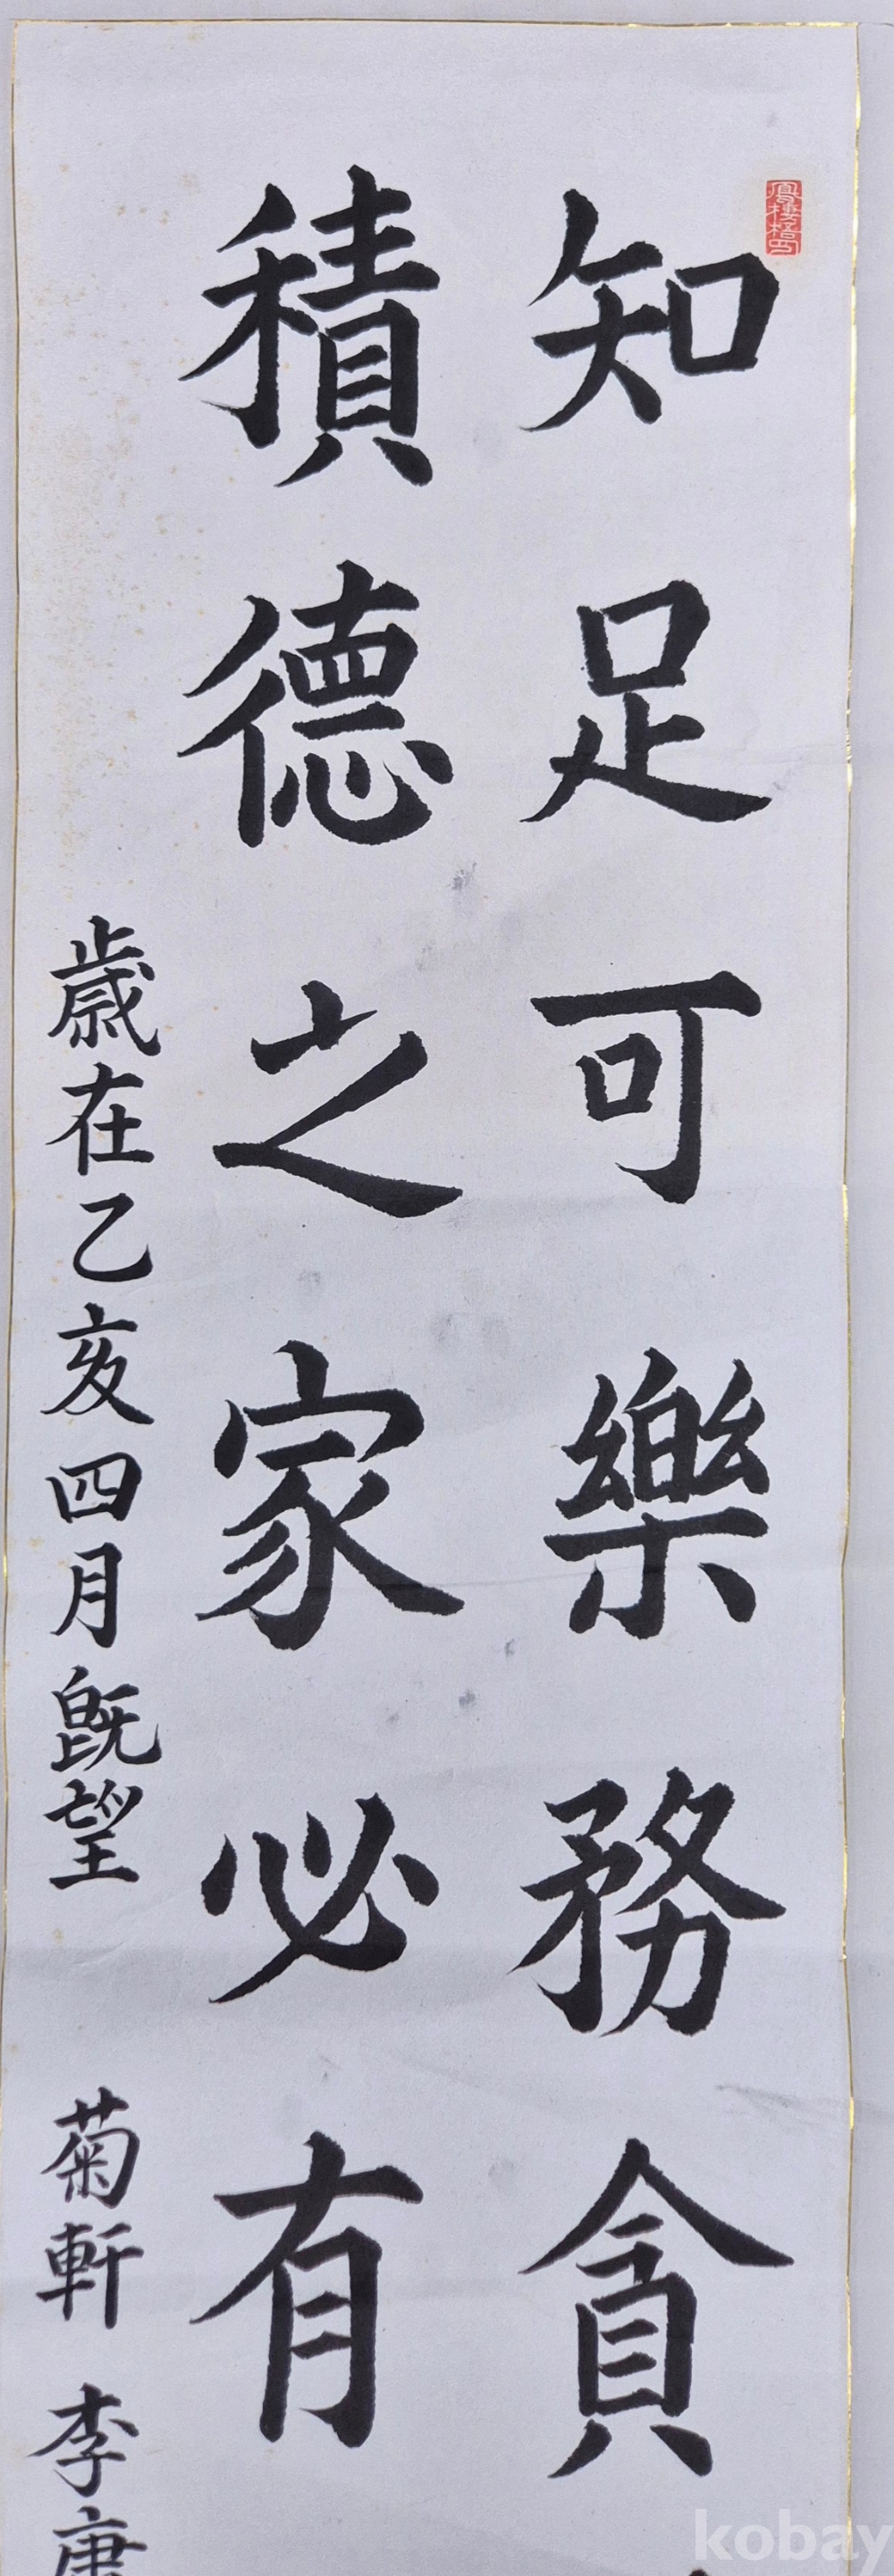 知足可樂務貪
積德之家必有
歲在乙亥四月旣望 菊軒 李康
kobay